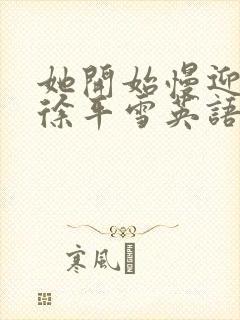 她開始慢迎
徐平雪英語
寒風